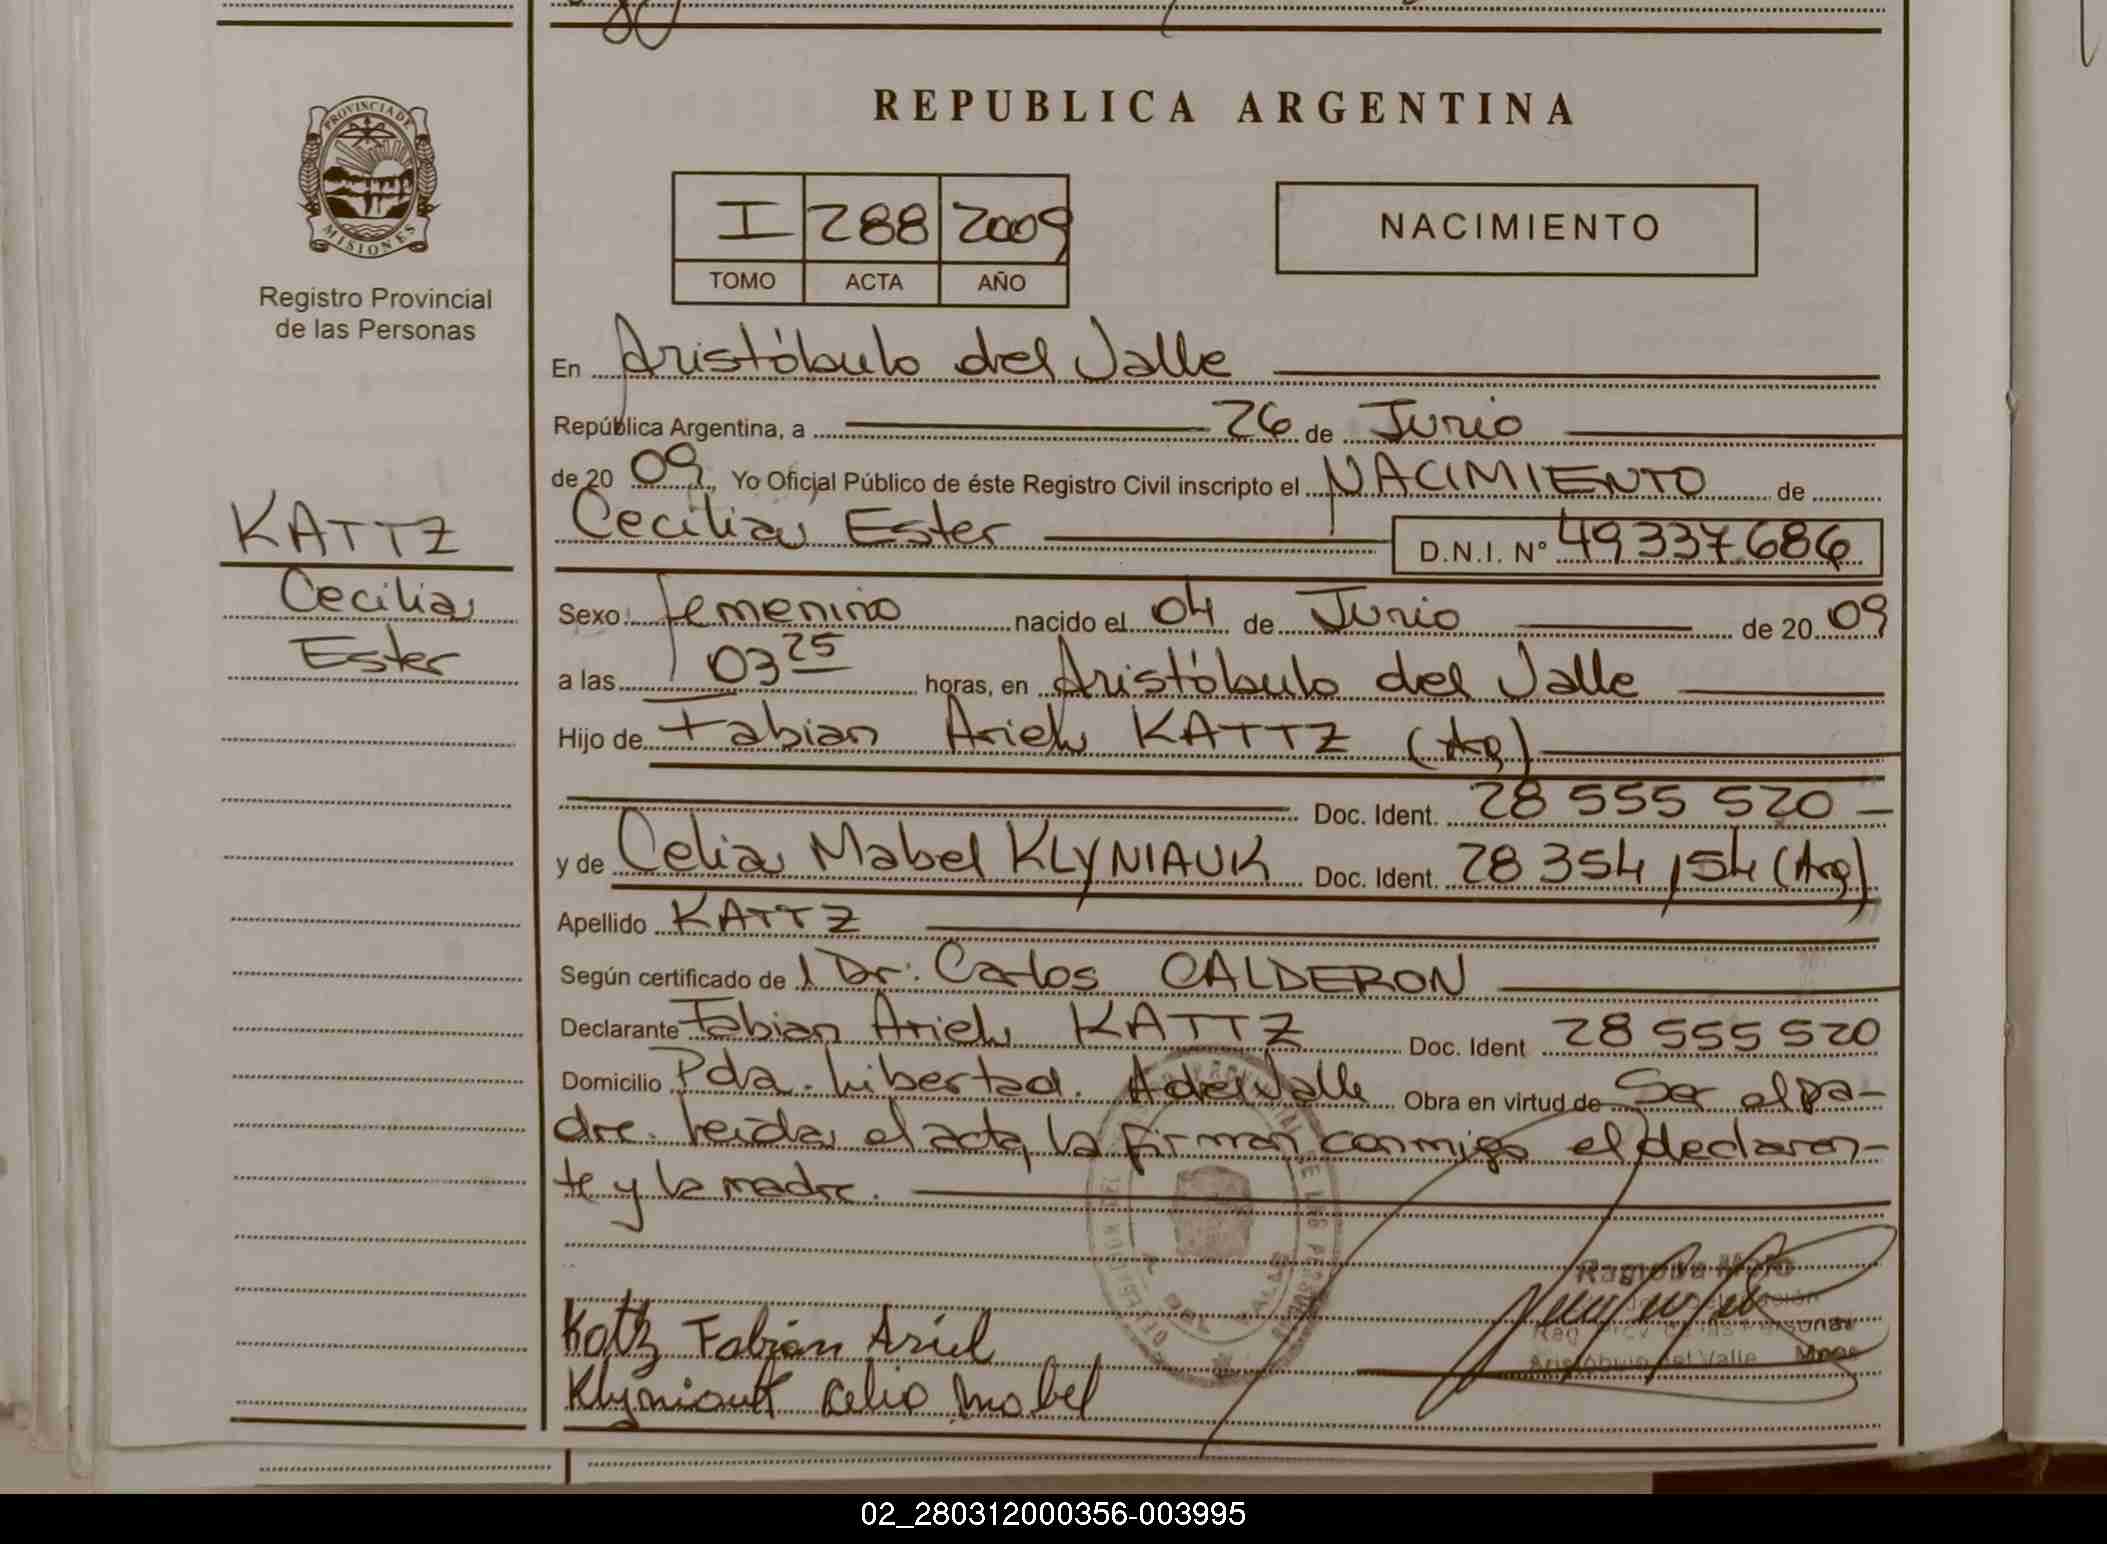 PROVINCIA DE
MISIONES
Registro Provincial
de las Personas
KATTZ
Cecilia
Ester
REPUBLICA ARGENTINA
I 288 2009
TOMO ACTA AÑO
NACIMIENTO
En Aristóbulo del Valle
República Argentina, a 26 de Junio
de 20 09, Yo Oficial Público de éste Registro Civil inscripto el NACIMIENTO de
Cecilia Ester D.N.I. N° 49337686
Sexo: femenino nacido el 04 de Junio de 20 09
a las 03 25 horas, en Aristóbulo del Valle
Hijo de Fabian Ariel KATTZ (Arg)
Doc. Ident. 28 555 520
y de Celia Mabel KLYNIAUK Doc. Ident. 28 354 154 (Arg)
Apellido KATTZ
Según certificado de l Dr. Carlos CALDERON
Declarante Fabian Ariel KATTZ Doc. Ident 28 555 520
Domicilio Pda. Libertad. A del Valle Obra en virtud de Ser el pa-
dre. Leida el acta, la firman conmigo el declaran-
te y la madre.
Kattz Fabián Ariel
Klyniauk Celia Mabel
Aristóbulo del Valle Mnes
02_280312000356-003995